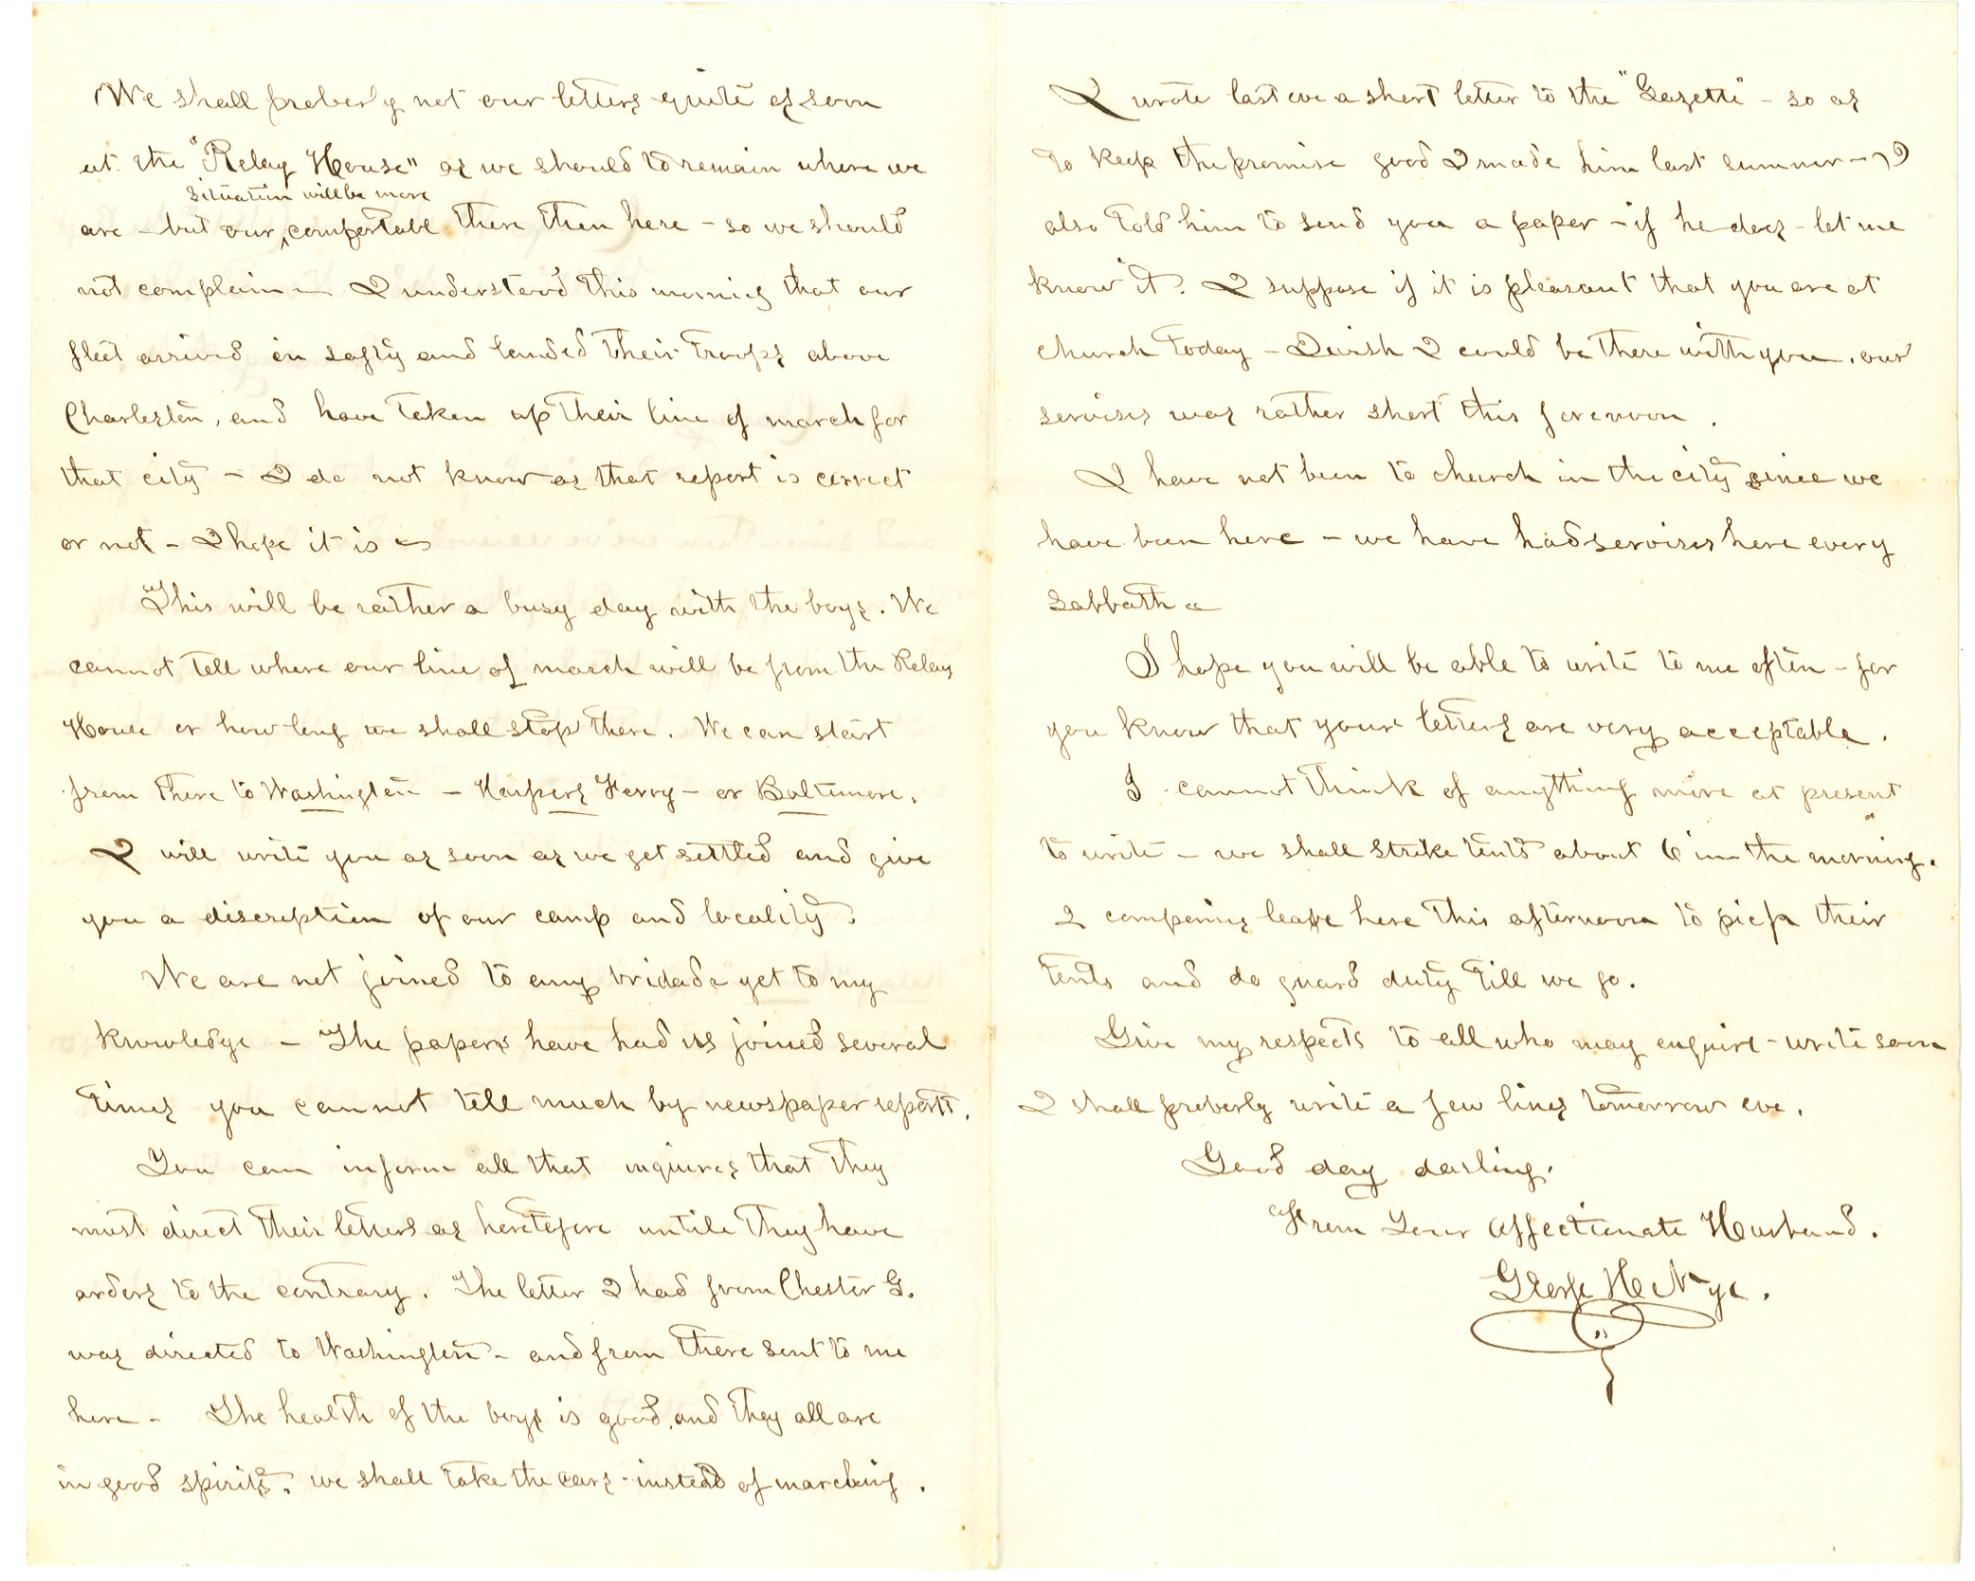 We shall proberly not our letters quite as soon
at the "Relay House" as we should to remain where we
situation will be more
are - but our comfortable there then here - so we should
not complain - I understood this morning that our
fleet arrived in safty and landed their troops above
Charleston, and have taken up their line of march for
that city - I do not know as that report is correct
or not - I hope it is -
This will be rather a busy day with the boys. We
cannot tell where our line of march will be from the Relay
House or how long we shall stop there. We can start
from there to Washington - Harpers Ferry - or Baltimore.
I will write you as soon as we get settled and give
you a discription of our camp and locality.
We are not joined to any bridade yet to my
knowledge - The papers have had us joined several
times you cannot tell much by newspaper reports.
You can inform all that inquires that they
must direct their letters as heretofore untile they have
orders to the contrary. The letter I had from Chester G.
was directed to Washington - and from there sent to me
here - The health of the boys is good, and they all are
in good spirits. we shall take the cars - instead of marching.
I wrote last eve a short letter to the "Gazette" - so as
to keep the promise good I made him last summer - I
also told him to send you a paper - if he does - let me
know it. I suppose if it is pleasant that you are at
church today - I wish I could be there with you. our
servises was rather short this forenoon.
I have not been to church in the city since we
have been here - we have had servises here every
Sabbath -
I hope you will be able to write to me often - for
you know that your letters are very acceptable.
I cannot think of anything more at present
to write - we shall "strike tents" about 6 in the morning.
2 companies leave here this afternoon to pich their
tents and do guard duty till we go.
Give my respects to all who may enquire - write soon
I shall proberly write a few lines tomorrow eve.
Good day darling.
From Your Affectionate Husband.
George H Nye.